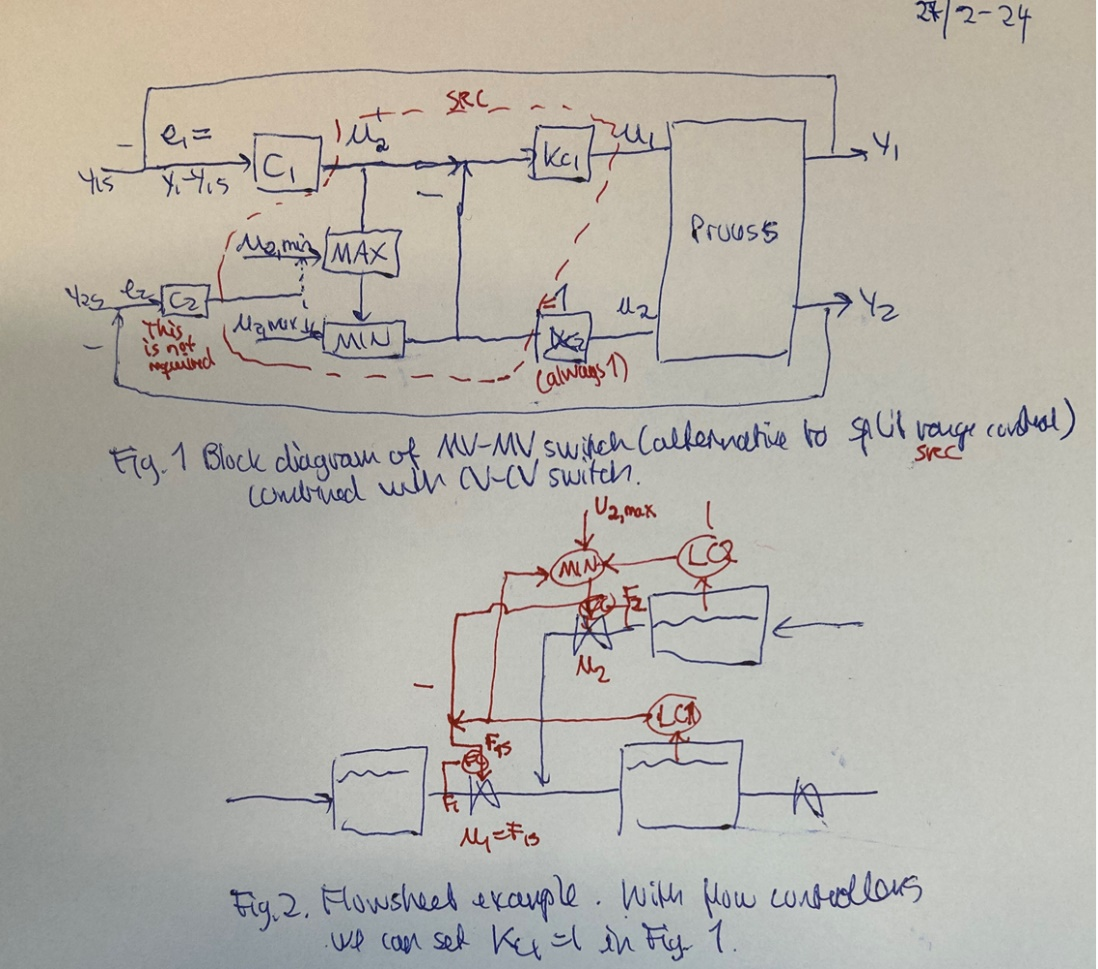 27/2-24
SRC
e₁ =
y₁s
y₁-y₁s
C₁
u₂⁺
Kc₁
u₁
y₁
Process
u₂,min
MAX
y₂s
e₂
C₂
u₂,max
MIN
=1
u₂
y₂
This
is not
required
(always 1)
Fig. 1 Block diagram of MV-MV switch (alternative to split range control)
SRC
combined with CV-CV switch.
u₂,max
MIN
LC2
F₂
u₂
LC1
F₁s
F₁
u₁=F₁s
Fig. 2. Flowsheet example. With flow controllers
we can set Kc₁ =1 in Fig. 1.